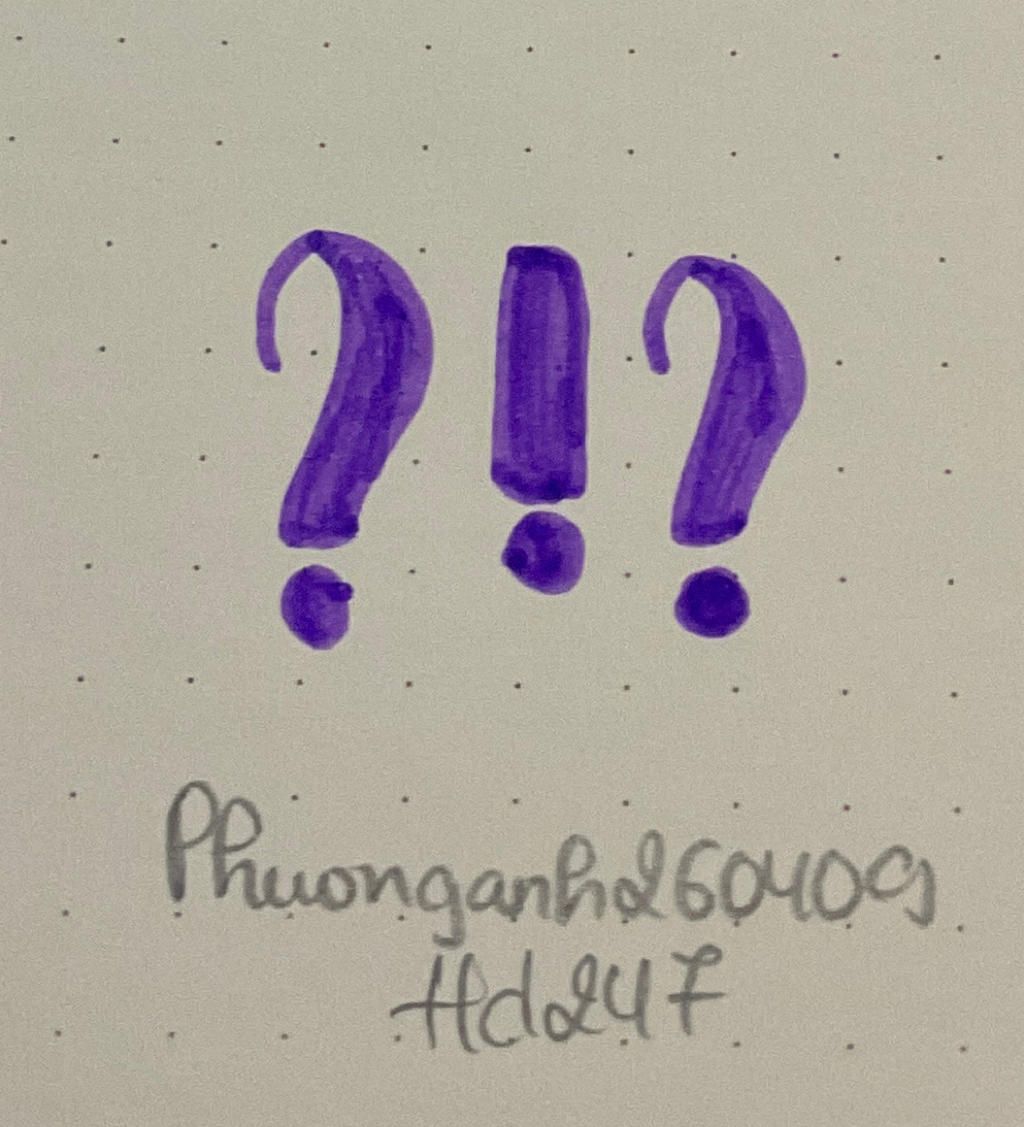 ?!?
Phuonganh260409
Hd247